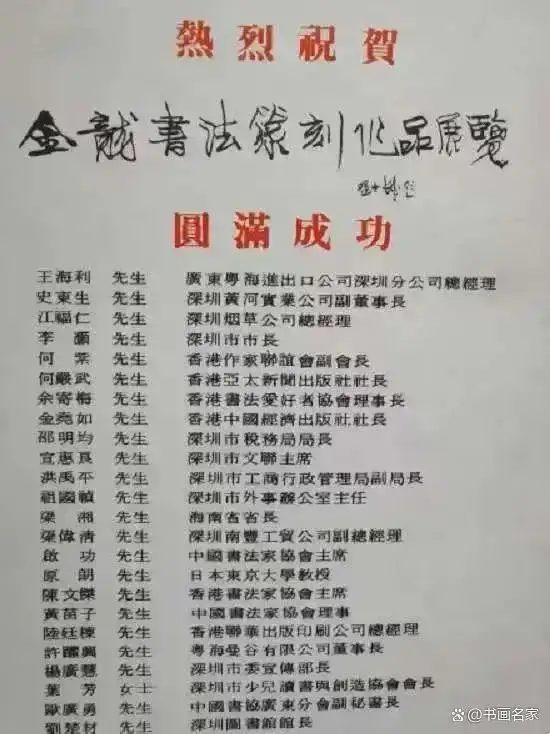 熱烈祝賀
金龍書法篆刻作品展覽
圓滿成功
王海利 先生 廣東粵海進出口公司深圳分公司總經理
史東生 先生 深圳黃河實業公司副董事長
江福仁 先生 深圳烟草公司總經理
李灝 先生 深圳市市長
何紫 先生 香港作家聯誼會副會長
何嚴武 先生 香港亞太新聞出版社社長
余寄梅 先生 香港書法愛好者協會理事長
金堯如 先生 香港中國經濟出版社社長
邵明均 先生 深圳市稅務局局長
宣惠良 先生 深圳市文聯主席
洪禹平 先生 深圳市工商行政管理局副局長
祖國禎 先生 深圳市外事辦公室主任
梁湘 先生 海南省省長
梁偉清 先生 深圳南豐工貿公司副總經理
啟功 先生 中國書法家協會主席
原朗 先生 日本東京大學教授
陳文傑 先生 香港書法家協會主席
黃苗子 先生 中國書法家協會理事
陸廷棟 先生 香港聯華出版印刷公司總經理
許躍興 先生 粵海曼谷有限公司董事長
楊廣慧 先生 深圳市委宣傳部長
葉芳 女士 深圳市少兒讀書與創造協會會長
歐廣勇 先生 中國書協廣東分會副秘書長
劉楚材 先生 深圳圖書館館長
@书画名家